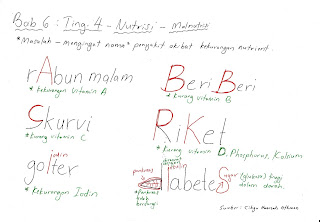 Bab 6 : Ting. 4 - Nutrisi - Malnutrisi
* Masalah - mengingat nama² penyakit akibat kekurangan nutrient.
rAbun malam
* Kekurangan vitamin A
Beri Beri
* Kurang vitamin B
Skurvi
* Kurang vitamin C
RiKet
* Kurang vitamin D, Phosphorus, Kalsium
iodin
goiter
* Kekurangan Iodin
pankreas
* Pankreas tidak berfungsi
diabetes
Sugar (glukosa) tinggi dalam darah.
Sumber : Cikgu